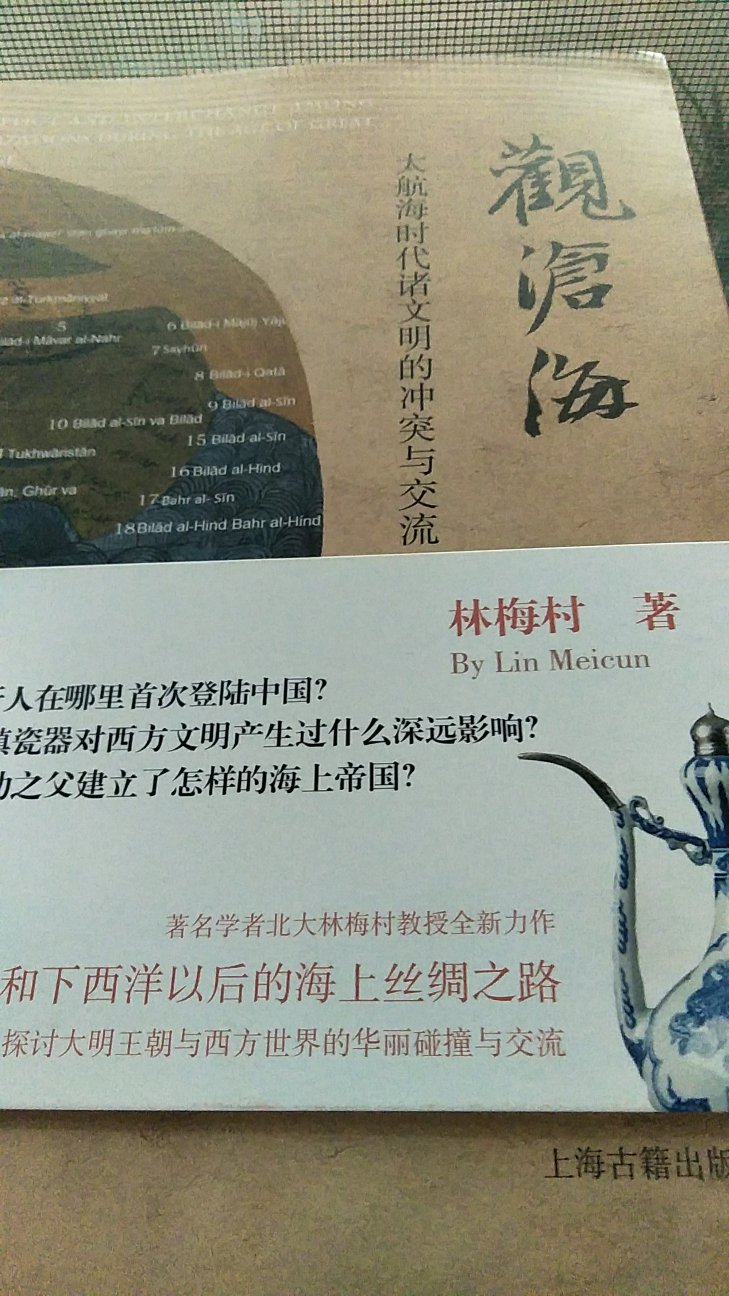 觀滄海
大航海时代诸文明的冲突与交流
DURING THE AGE OF GREAT
5
6 Bilād-i Mājūj Yāju
Māvar al-Nahr
7 Sayhūn
8 Bilād-i Qatā
9 Bilād al-Sīn
10 Bilād al-Sīn va Bilād
15 Bilād al-Sīn
Tukhwāristān
16 Bilād al-Hind
Ghūr va
17 Bahr al- Sīn
18 Bilād al-Hind Bahr al-Hind
林梅村 著
By Lin Meicun
人在哪里首次登陆中国?
瓷器对西方文明产生过什么深远影响?
之父建立了怎样的海上帝国?
著名学者北大林梅村教授全新力作
和下西洋以后的海上丝绸之路
探讨大明王朝与西方世界的华丽碰撞与交流
上海古籍出版